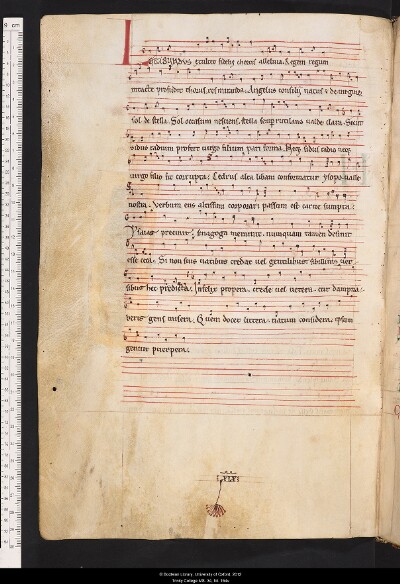 Letabundus exultet fidelis chorus alleluia. Regem regum
intacte profudit thorus res miranda. Angelus consilij natus e de uirgine
sol de stella. Sol occasum nesciens. stella semper rutilans ualde clara. Sicut
sidus radium profert uirgo filium pari forma. Neq; sidus radio neq;
uirgo filio fit corrupta. Cedrus alta libani conformatur ysopo ualle
nostra. Verbum ens altissimi corporari passum est carne sumpta.
Ysaias precinit. synagoga meminit. numquam tamen desinit
esse ceca. Si non suis uatibus credat uel gentilibus. sibillinis uer
sibus hec predicta. Infelix propera. crede uel uetera. cur dampna
beris gens misera. Quem docet littera. natum considera. ipsum
genuit puerpera.
© Bodleian Library, University of Oxford, 2012